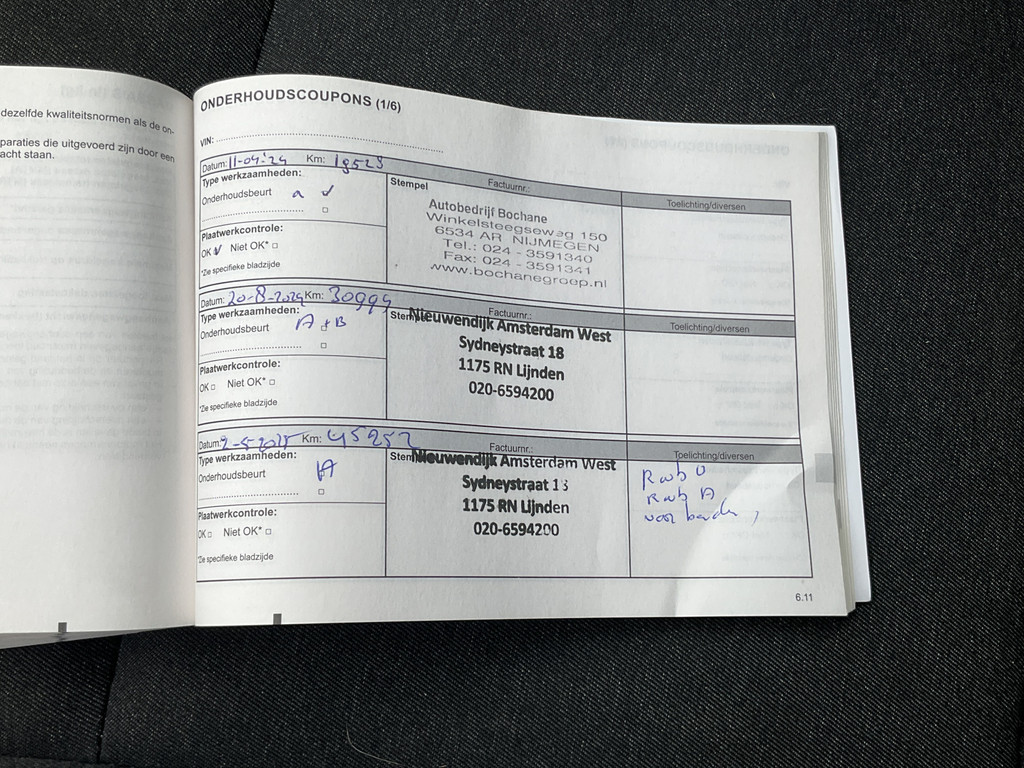 dezelfde kwaliteitsnormen als de on-
paraties die uitgevoerd zijn door een
acht staan.
ONDERHOUDSCOUPONS (1/6)
VIN:
Datum: 11-04-'24 Km: 18523
Type werkzaamheden:
Onderhoudsbeurt a
Plaatwerkcontrole:
OK Niet OK*
*Zie specifieke bladzijde
Stempel
Factuurnr.:
Autobedrijf Bochane
Winkelsteegseweg 150
6534 AR NIJMEGEN
Tel.: 024 - 3591340
Fax: 024 - 3591341
www.bochanegroep.nl
Toelichting/diversen
Datum: 20-8-2024 Km: 30999
Type werkzaamheden:
Onderhoudsbeurt A+B
Plaatwerkcontrole:
OK Niet OK*
*Zie specifieke bladzijde
Stempel
Factuurnr.:
Nieuwendijk Amsterdam West
Sydneystraat 18
1175 RN Lijnden
020-6594200
Toelichting/diversen
Datum: 9-5-2025 Km: 45252
Type werkzaamheden:
Onderhoudsbeurt A
Plaatwerkcontrole:
OK Niet OK*
*Zie specifieke bladzijde
Factuurnr.:
Nieuwendijk Amsterdam West
Sydneystraat 18
1175 RN Lijnden
020-6594200
Toelichting/diversen
6.11